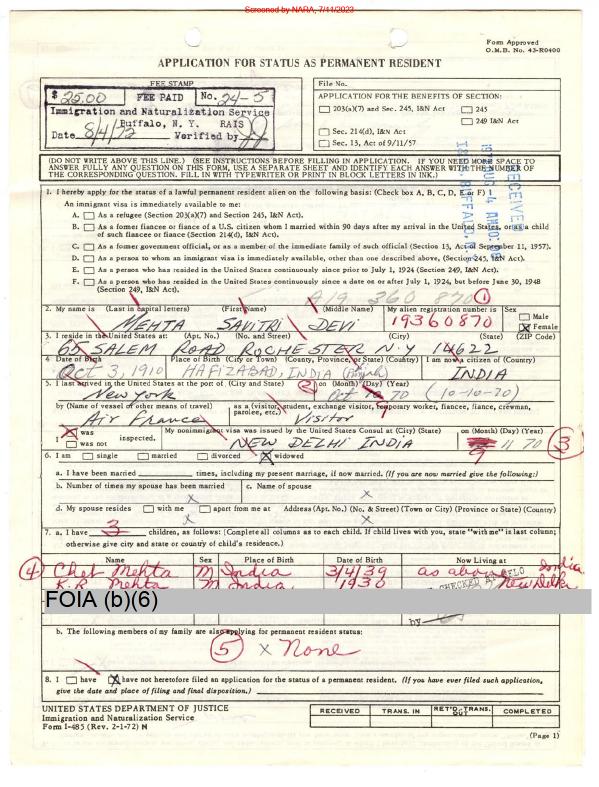 Screened by NARA, 7/11/2023
Form Approved
O.M.B. No. 43-R0400
APPLICATION FOR STATUS AS PERMANENT RESIDENT
FEE STAMP
$ 25.00 FEE PAID No. 24-5
Immigration and Naturalization Service
Buffalo, N. Y. RAIS
Date 8/4/72 Verified by
File No.
APPLICATION FOR THE BENEFITS OF SECTION:
203(a)(7) and Sec. 245, I&N Act 245
249 I&N Act
Sec. 214(d), I&N Act
Sec. 13, Act of 9/11/57
RECEIVED
(DO NOT WRITE ABOVE THIS LINE.) (SEE INSTRUCTIONS BEFORE FILLING IN APPLICATION. IF YOU NEED MORE SPACE TO
ANSWER FULLY ANY QUESTION ON THIS FORM, USE A SEPARATE SHEET AND IDENTIFY EACH ANSWER WITH THE NUMBER OF
THE CORRESPONDING QUESTION. FILL IN WITH TYPEWRITER OR PRINT IN BLOCK LETTERS IN INK.)
1. I hereby apply for the status of a lawful permanent resident alien on the following basis: (Check box A, B, C, D, E or F)
An immigrant visa is immediately available to me:
A. As a refugee (Section 203(a)(7) and Section 245, I&N Act).
B. As a former fiancee or fiance of a U.S. citizen whom I married within 90 days after my arrival in the United States, or as a child
of such fiancee or fiance (Section 214(d), I&N Act).
C. As a former government official, or as a member of the immediate family of such official (Section 13, Act of September 11, 1957).
D. As a person to whom an immigrant visa is immediately available, other than one described above, (Section 245, I&N Act).
E. As a person who has resided in the United States continuously since prior to July 1, 1924 (Section 249, I&N Act).
F. As a person who has resided in the United States continuously since a date on or after July 1, 1924, but before June 30, 1948
(Section 249, I&N Act).
A19 360 870 1
2. My name is (Last in capital letters) (First Name) (Middle Name) My alien registration number is Sex
MEHTA SAVITRI DEVI 19360870 Male Female
3. I reside in the United States at: (Apt. No.) (No. and Street) (City) (State) (ZIP Code)
65 SALEM ROAD ROCHESTER N.Y 14622
4 Date of Birth Place of Birth (City or Town) (County, Province, or State) (Country) I am now a citizen of (Country)
Oct 3, 1910 HAFIZABAD, INDIA INDIA
5. I last arrived in the United States at the port of (City and State) 2 on (Month) (Day) (Year)
New York Oct 10 70 (10-10-70)
by (Name of vessel or other means of travel) as a (visitor, student, exchange visitor, temporary worker, fiancee, fiance, crewman,
parolee, etc.)
Air France Visitor
was
was not inspected. My nonimmigrant visa was issued by the United States Consul at (City) (State) on (Month) (Day) (Year)
NEW DELHI INDIA 9 11 70 3
6. I am single married divorced widowed
a. I have been married times, including my present marriage, if now married. (If you are now married give the following:)
b. Number of times my spouse has been married c. Name of spouse
x x
d. My spouse resides with me apart from me at Address (Apt. No.) (No. & Street) (Town or City) (Province or State) (Country)
x x
7. a. I have 3 children, as follows: (Complete all columns as to each child. If child lives with you, state "with me" in last column;
otherwise give city and state or country of child's residence.)
Name Sex Place of Birth Date of Birth Now Living at
4 Chet Mehta M India 3/4/39 as above India
K.R. Mehta M India 1930 New Delhi
CHECKED
FOIA (b)(6)
by
b. The following members of my family are also applying for permanent resident status:
5 x None
8. I have have not heretofore filed an application for the status of a permanent resident. (If you have ever filed such application,
give the date and place of filing and final disposition.)
UNITED STATES DEPARTMENT OF JUSTICE
Immigration and Naturalization Service
Form I-485 (Rev. 2-1-72) N
RECEIVED TRANS. IN RET'D-TRANS. OUT COMPLETED
(Page 1)